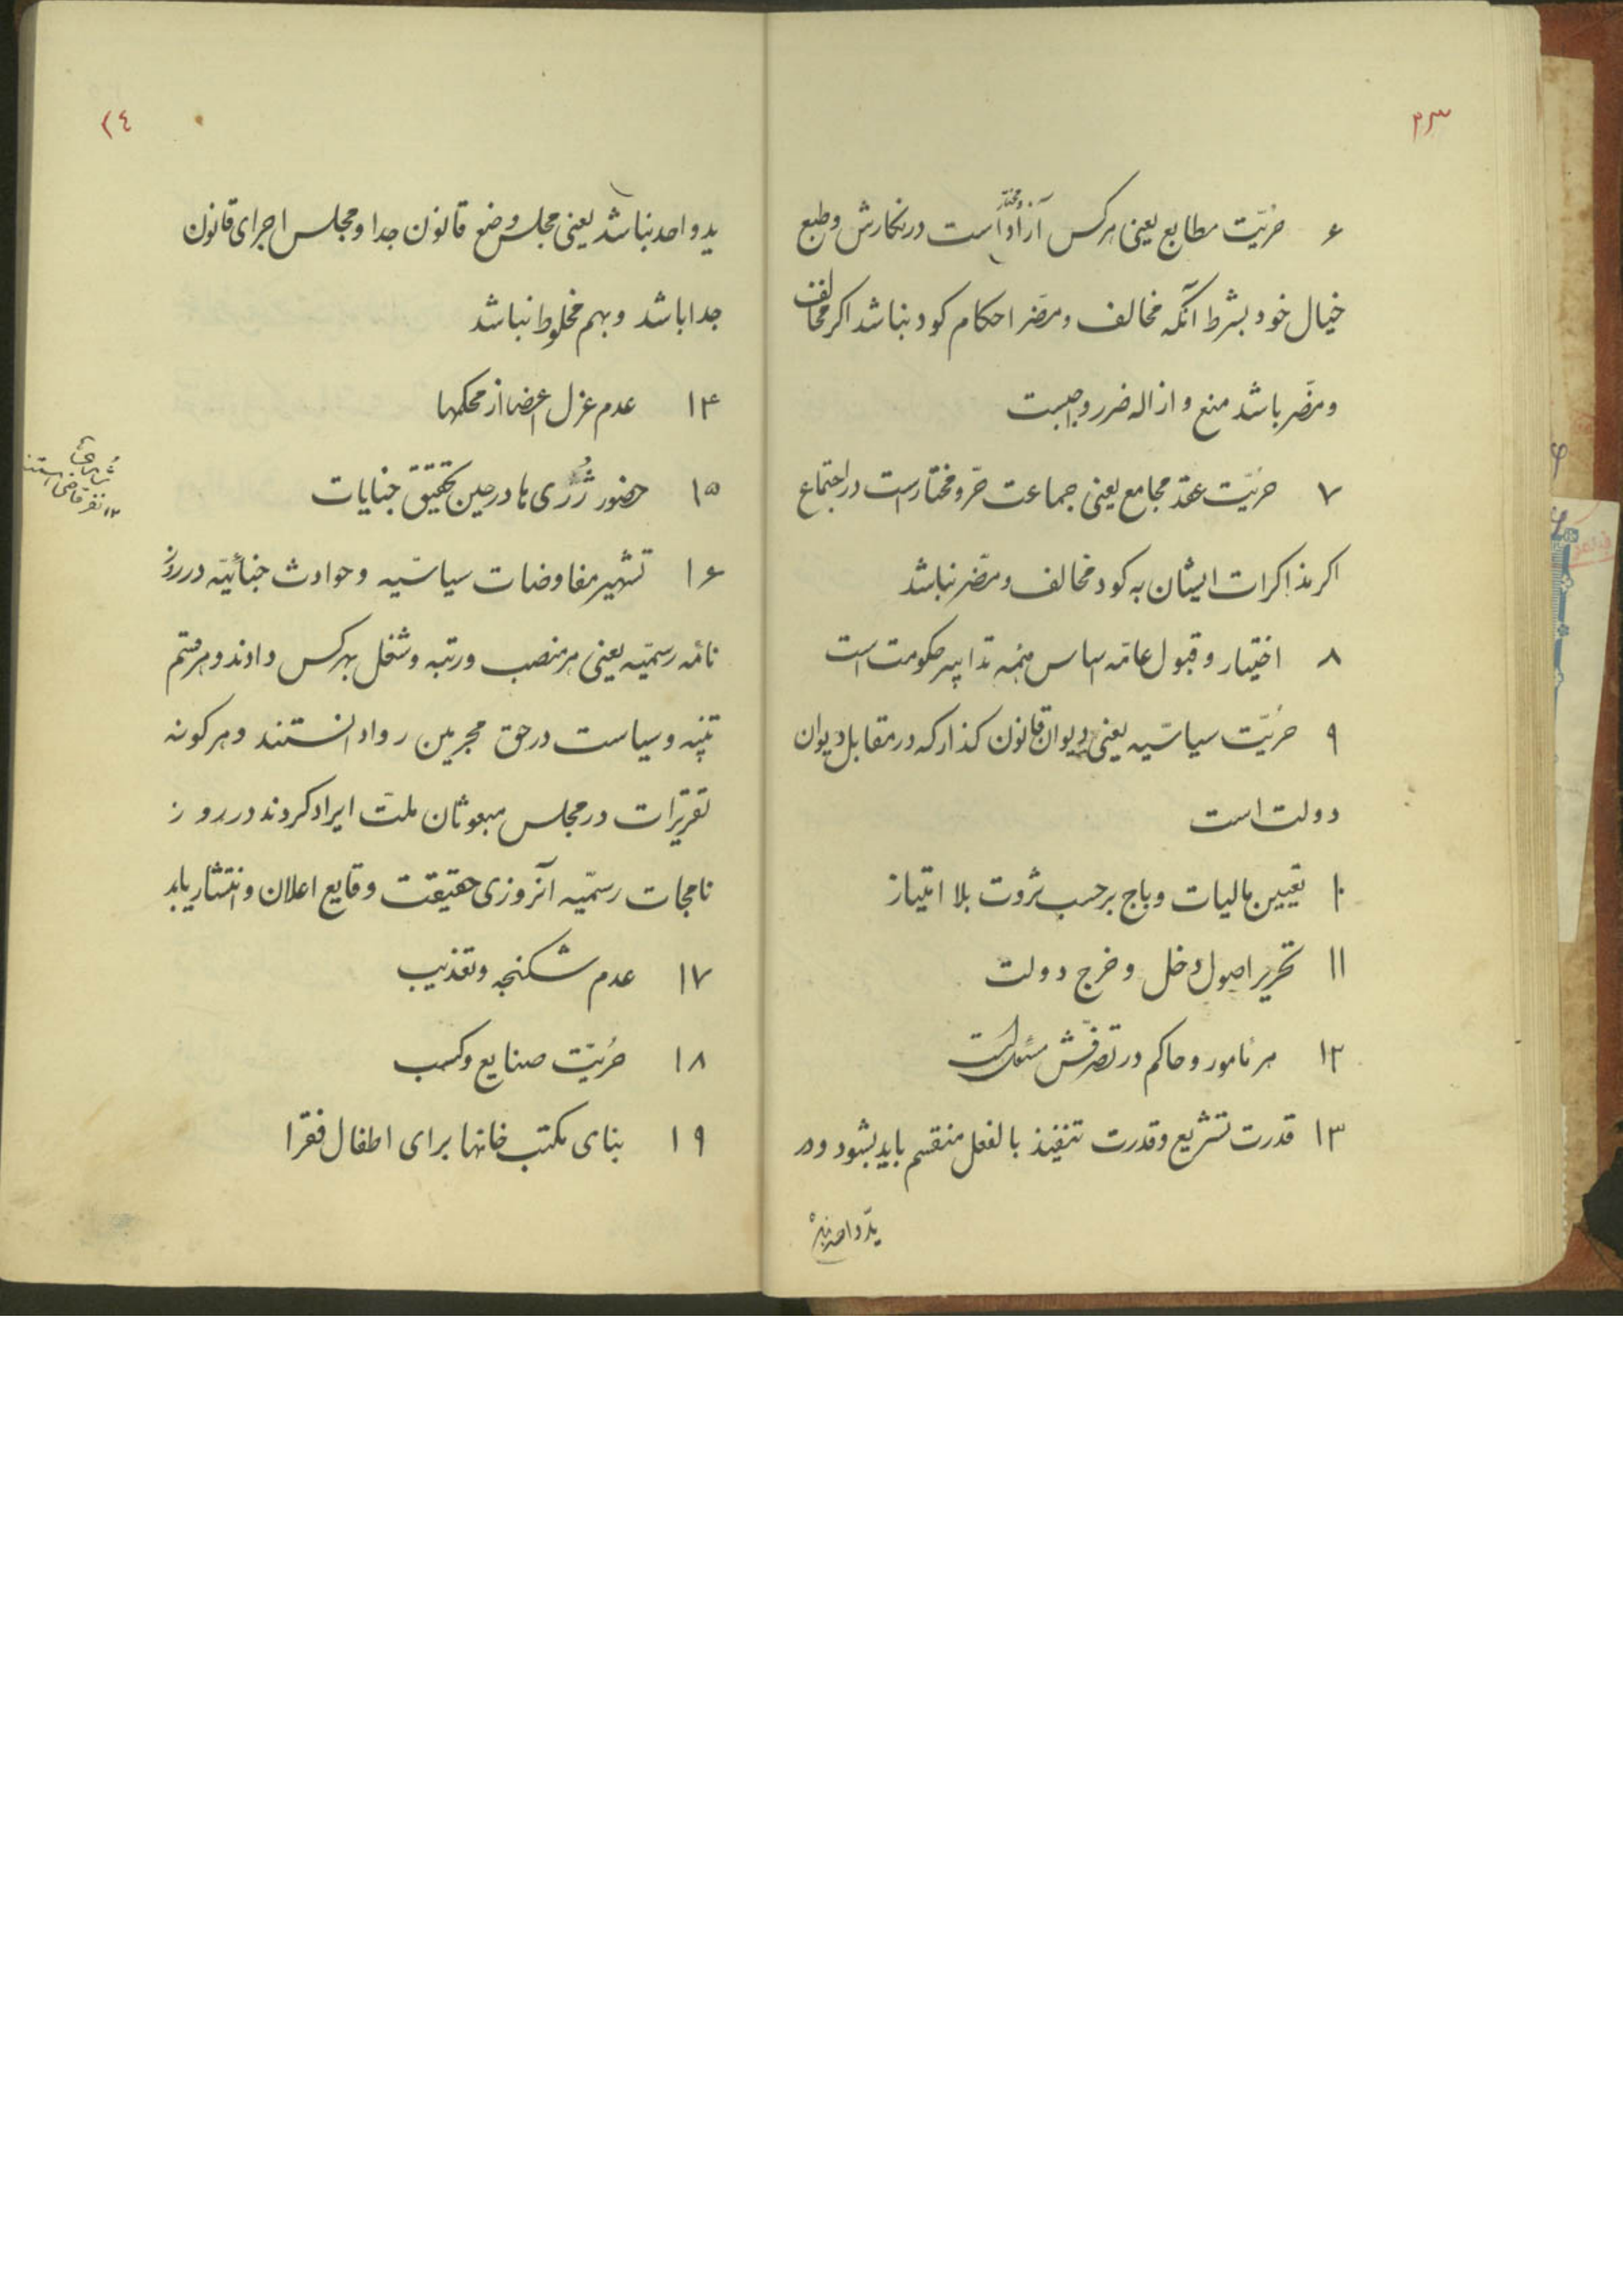 ۲۳
۶ حرّیّت مطابع یعنی هرکس آزاد و مختار است در نکارش و طبع
خیال خود بشرط آنکه مخالف و مضرّ احکام کود نباشد اکر مخالف
و مضرّ باشد منع و ازاله ضرر واجبست
۷ حرّیّت عقد مجامع یعنی جماعت حرّ و مختار است در اجتماع
اکر مذاکرات ایشان به کود مخالف و مضرّ نباشد
۸ اختیار و قبول عامّه اساس همه تدابیر حکومت است
۹ حرّیّت سیاسیّه یعنی دیوان قانون کذار که در مقابل دیوان
دولت است
۱۰ تعیین مالیات و باج برحسب ثروت بلا امتیاز
۱۱ تحریر اصول دخل و خرج دولت
۱۲ هر مأمور و حاکم در تصرّفش مسئول است
۱۳ قدرت تشریع و قدرت تنفیذ بالفعل منقسم باید بشود و در
ید واحد نباشد
۲٤
ید واحد نباشد یعنی مجلس وضع قانون جدا و مجلس اجرای قانون
جدا باشد و بهم مخلوط نباشد
۱۴ عدم عزل اعضا از محکمها
۱۵ حضور ژُرُی ها در حین تحقیق جنایات
۱۲ نفر قاضی
۱۶ تشهیر مفاوضات سیاسیّه و حوادث جنائیّه در روز
نامّه رسمیّه یعنی هر منصب و رتبه و شغل بهرکس دادند و هر قسم
تنبیه و سیاست در حق مجرمین روا دانستند و هرکونه
تقریرات در مجلس مبعوثان ملّت ایراد کردند در روز
نامجات رسمیّه آنروزی حقیقت وقایع اعلان و انتشار یابد
۱۷ عدم شکنجه و تعذیب
۱۸ حرّیّت صنایع و کسب
۱۹ بنای مکتب خانها برای اطفال فقرا